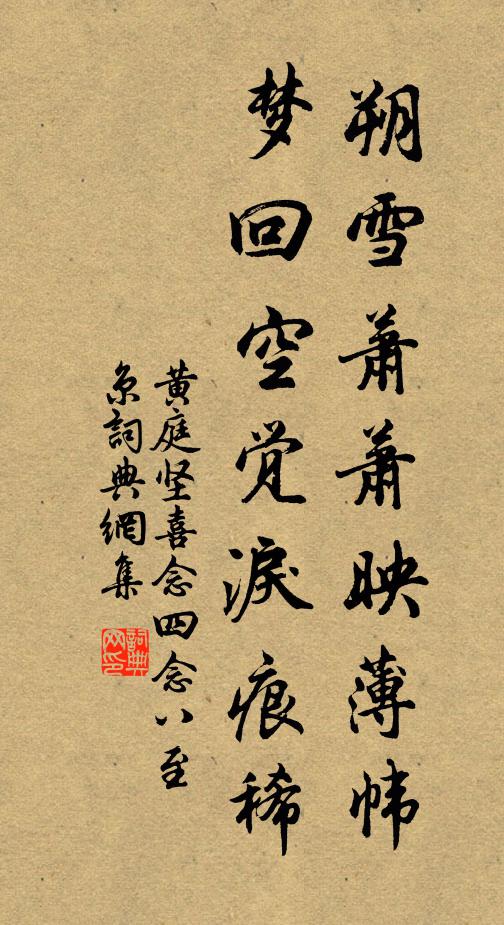 朔雪萧萧映薄帏
梦回空觉淚痕稀
黄庭坚喜念四念八至
京詞典網集
詞典网印